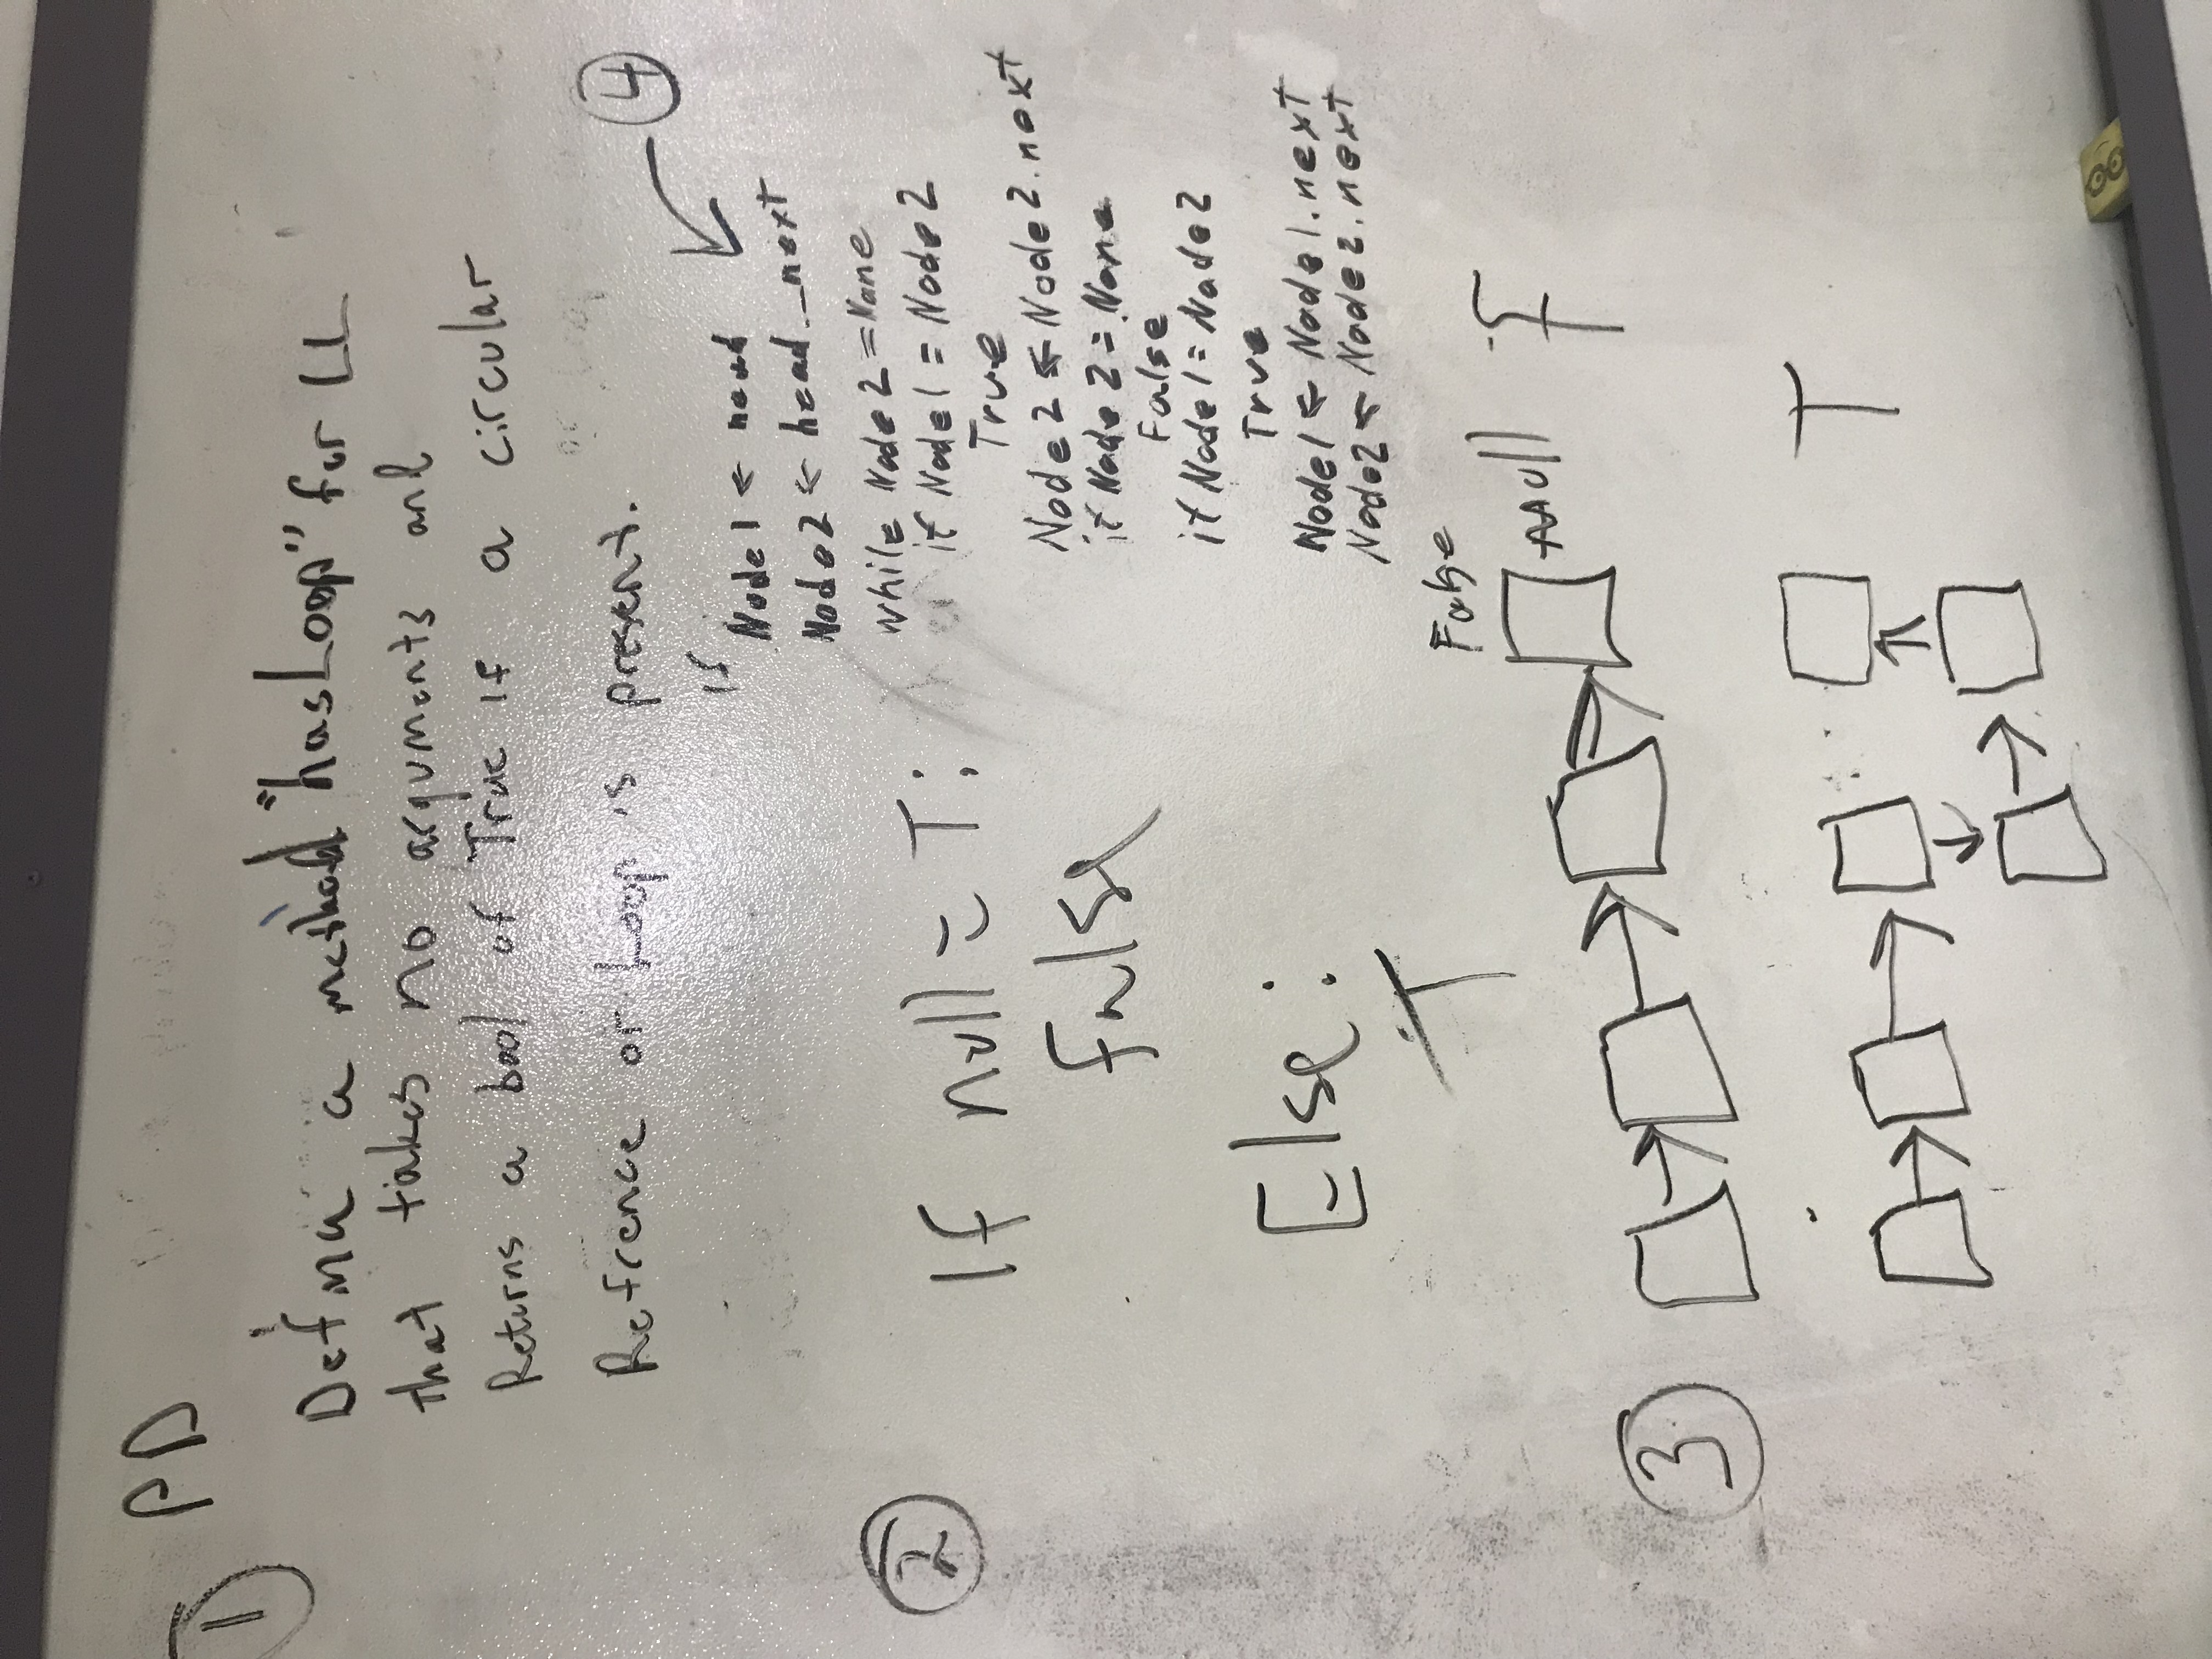 ① PD
Define a method "hasLoop" for LL
that takes no arguments and
Returns a bool of True if a circular
Refrence or Loop is present.
②
If null = T:
false
Else:
T
④
If
Node1 ← head
Node2 ← head._next
while Node2 = None
if Node1 = Node2
True
Node2 ← Node2.next
if Node2 = None
False
if Node1 = Node2
True
Node1 ← Node1.next
Node2 ← Node2.next
False
③
null F
T